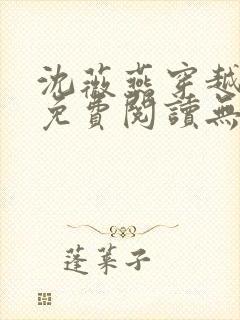 沈薇燕穿越
免費閱讀無
蓬萊子